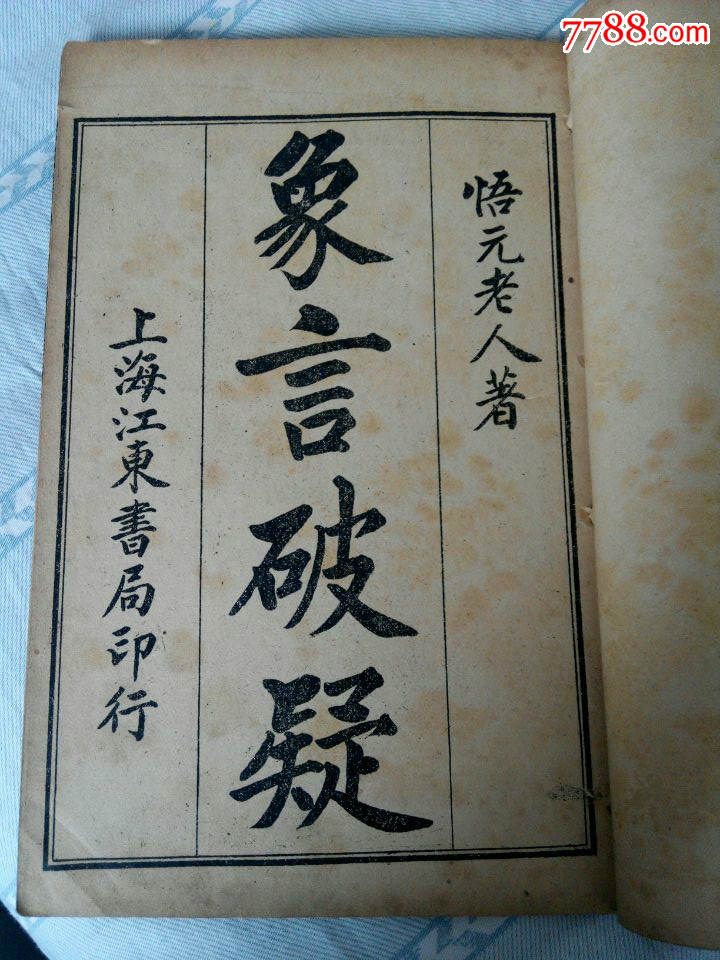 7788.com
悟元老人著
象言破疑
上海江東書局印行